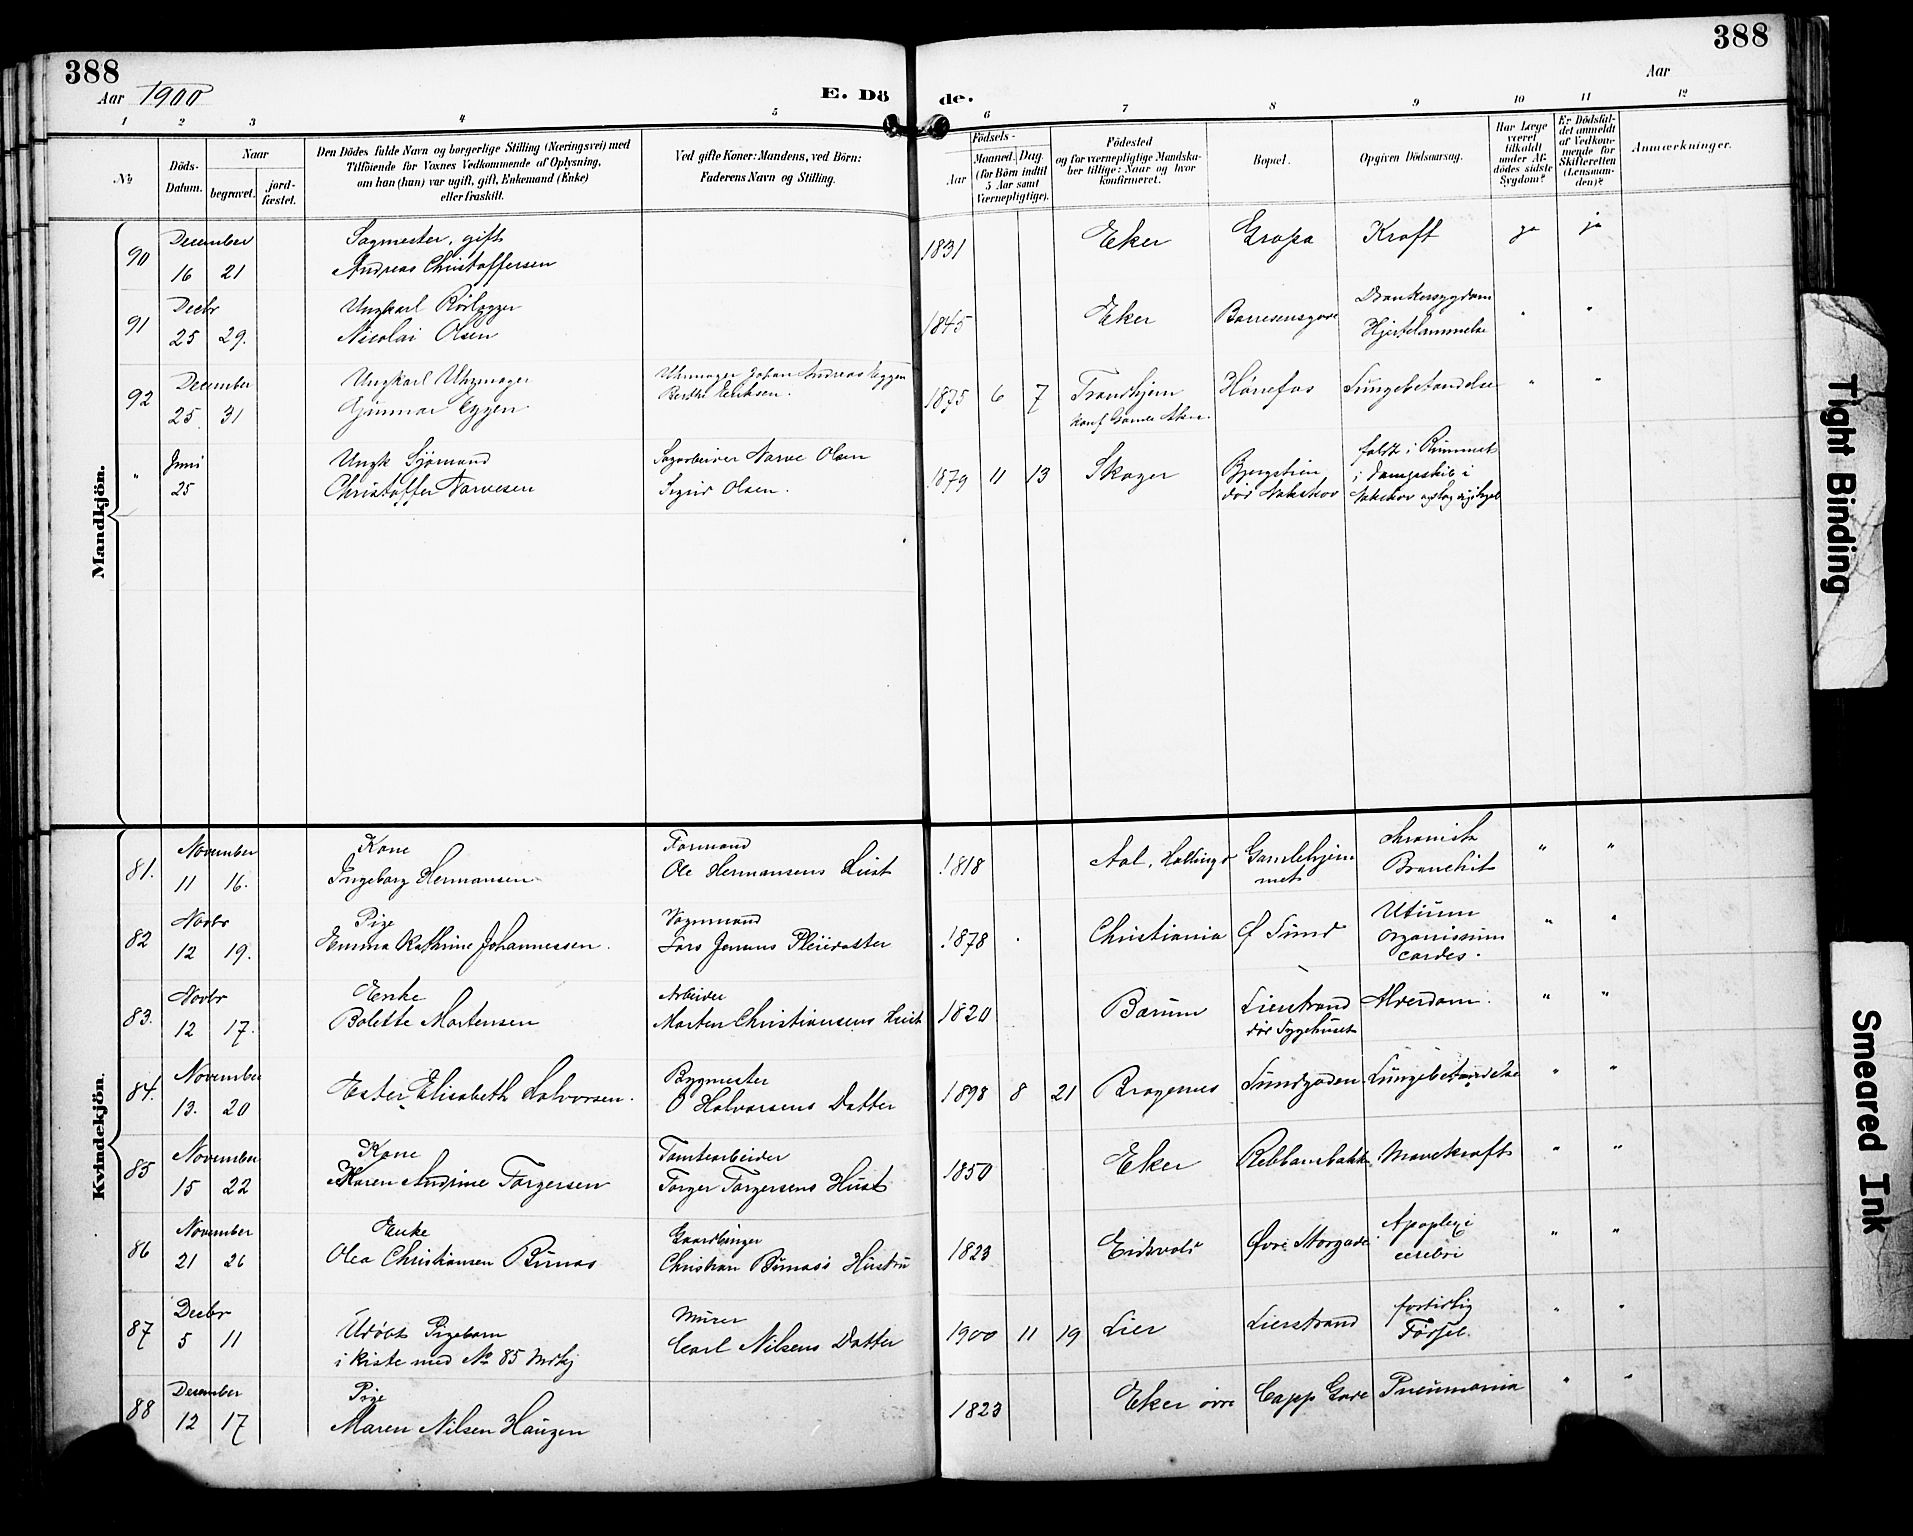 388
388
Aar 1900
E. Dö de.
Aar
1 2 3 4 5 6 7 8 9 10 11 12
№
Döds-Datum.
Naar
begravet.
jord-fæstet.
Den Dödes fulde Navn og borgerlige Stilling (Næringsvei) med
Tilföiende for Voxnes Vedkommende af Oplysning,
om han (hun) var ugift, gift, Enkemand (Enke)
eller fraskilt.
Ved gifte Koner: Mandens, ved Börn:
Faderens Navn og Stilling.
Födsels-
Aar
Maaned. Dag.
(for Börn indtil
5 Aar samt
Værnepligtige).
Födested
og for værnepligtige Mandska-
ber tillige: Naar og hvor
konfirmeret.
Bopæl.
Opgiven Dödsaarsag.
Har Læge
været
tilkaldt
under Af-
dödes sidste
Sygdom?
Er Dödsfal-
det anmeldt
af Vedkom-
mende for
Skifteretten
(Lensman-
den)?
Anmærkninger.
Mandkjön.
90 December 16 21 Sagmester, gift
Andreas Christoffersen
1831 Eker Gropa Kræft ja ja
91 Decbr 25 29. Ungkarl Rørlægger
Nicolai Olsen
1845 Eker Hjertelammelse " "
92 December 25 31 Ungkarl Uhrmager
Gunnar Eggen
Uhrmager Johan Andreas Eggen
Berthe Eriksen.
1875 6 7 Trondhjem
konf. Gamle Aker.
Hønefos Lungebetændelse " "
" Juni 25 Ungk Sjømand
Christoffer Narvesen
Sagarbeider Narve Olsen
Sigrid Olsen.
1879 11 13 Skoger Bjergstien
død Nakskov
faldt i Rummet
i Dampskib i
Nakskov
Kvindekjön.
81. November 11 16. Kone
Ingeborg Hermansen
Formand
Ole Hermansens Hust
1818 Aal, Hallingd Gamlehjem
met
chronisk
Bronchit " "
82 Novbr 12 19. Pige
Emma Kathrine Johannessen.
Vognmand
Lars Jensens Pleiedatter
1878 Christiania Ø Sund Vitium
organicum
cordis. " "
83. Novbr 12 17. Enke
Bolette Mortensen
Arbeider
Morten Christiansens Hust
1820 Bærum Lierstrand
død Sygehuset
Alderdom. " "
84. November 13. 20 Ester Elisabeth Halvorsen.
Bygmester
O Halvorsens Datter
1898 8 21 Bragernes Sundgaden. Lungebetændelse " "
85 November 15 22 Kone
Maren Andrine Torgersen
Tomtearbeider
Torger Torgersens Hust
1850 Eker Rebbansbakk Mavekræft " "
86 November 21 26 Enke
Olea Christiansen Burnas
Gaardbruger
Christian Burnas's Hustru
1823 Eidsvold Øvre Storgade Apoplexi
cerebri " "
87 Decbr 5 11 Udøbt Pigebarn
i kiste med No 85 Mdkj
Murer
Carl Nilsens Datter
1900 11 19 Lier Lierstrand fortidlig
Fødsel. " "
88 December 12 17 Pige
Maren Nilsen Haugen
1823 Eker øvre Capp Gade Pneumonia " "
Tight Binding
Smeared Ink